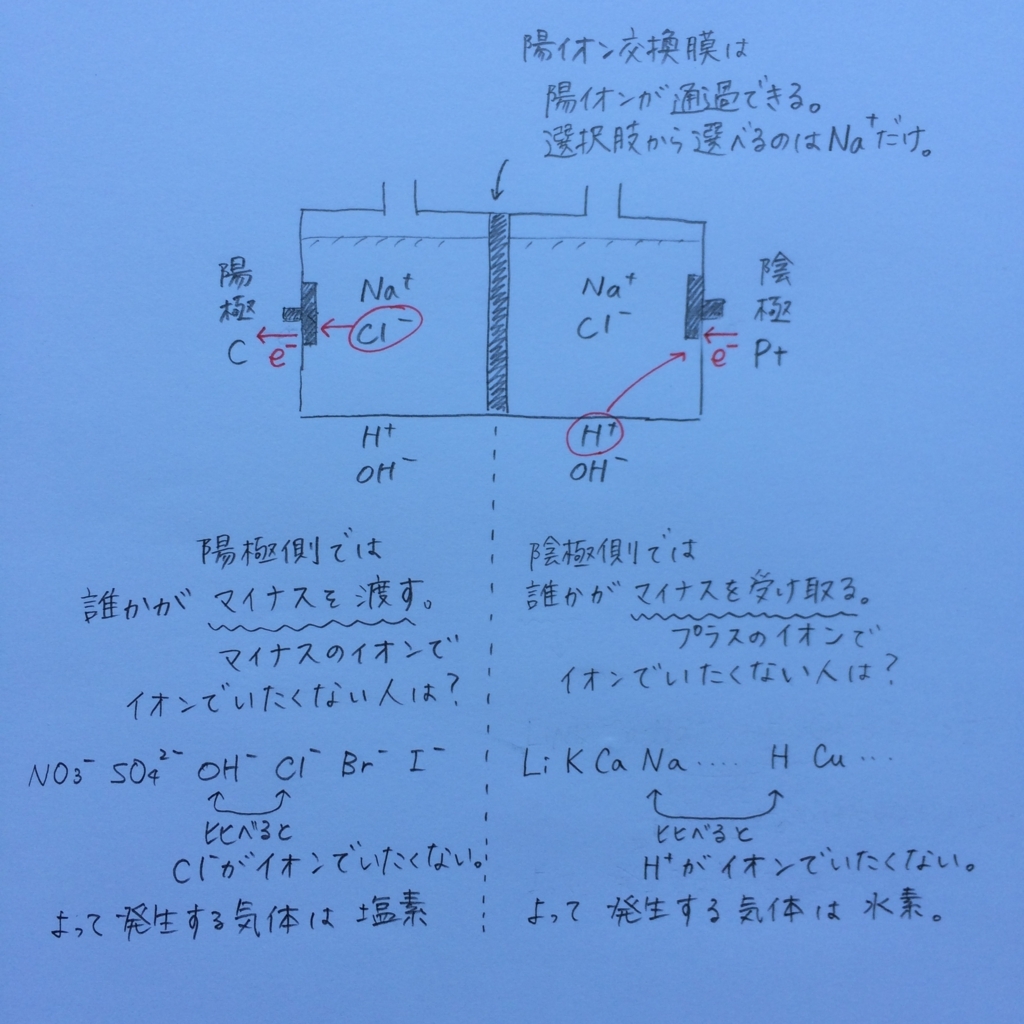 陽イオン交換膜は
陽イオンが通過できる。
選択肢から選べるのはNa⁺だけ。
陽極
C
e⁻
Na⁺
Cl⁻
H⁺
OH⁻
Na⁺
Cl⁻
H⁺
OH⁻
陰極
Pt
e⁻
陽極側では
誰かがマイナスを渡す。
マイナスのイオンで
イオンでいたくない人は?
NO₃⁻ SO₄²⁻ OH⁻ Cl⁻ Br⁻ I⁻
比べると
Cl⁻がイオンでいたくない。
よって発生する気体は塩素
陰極側では
誰かがマイナスを受け取る。
プラスのイオンで
イオンでいたくない人は?
Li K Ca Na ‥‥ H Cu …
比べると
H⁺がイオンでいたくない。
よって発生する気体は水素。